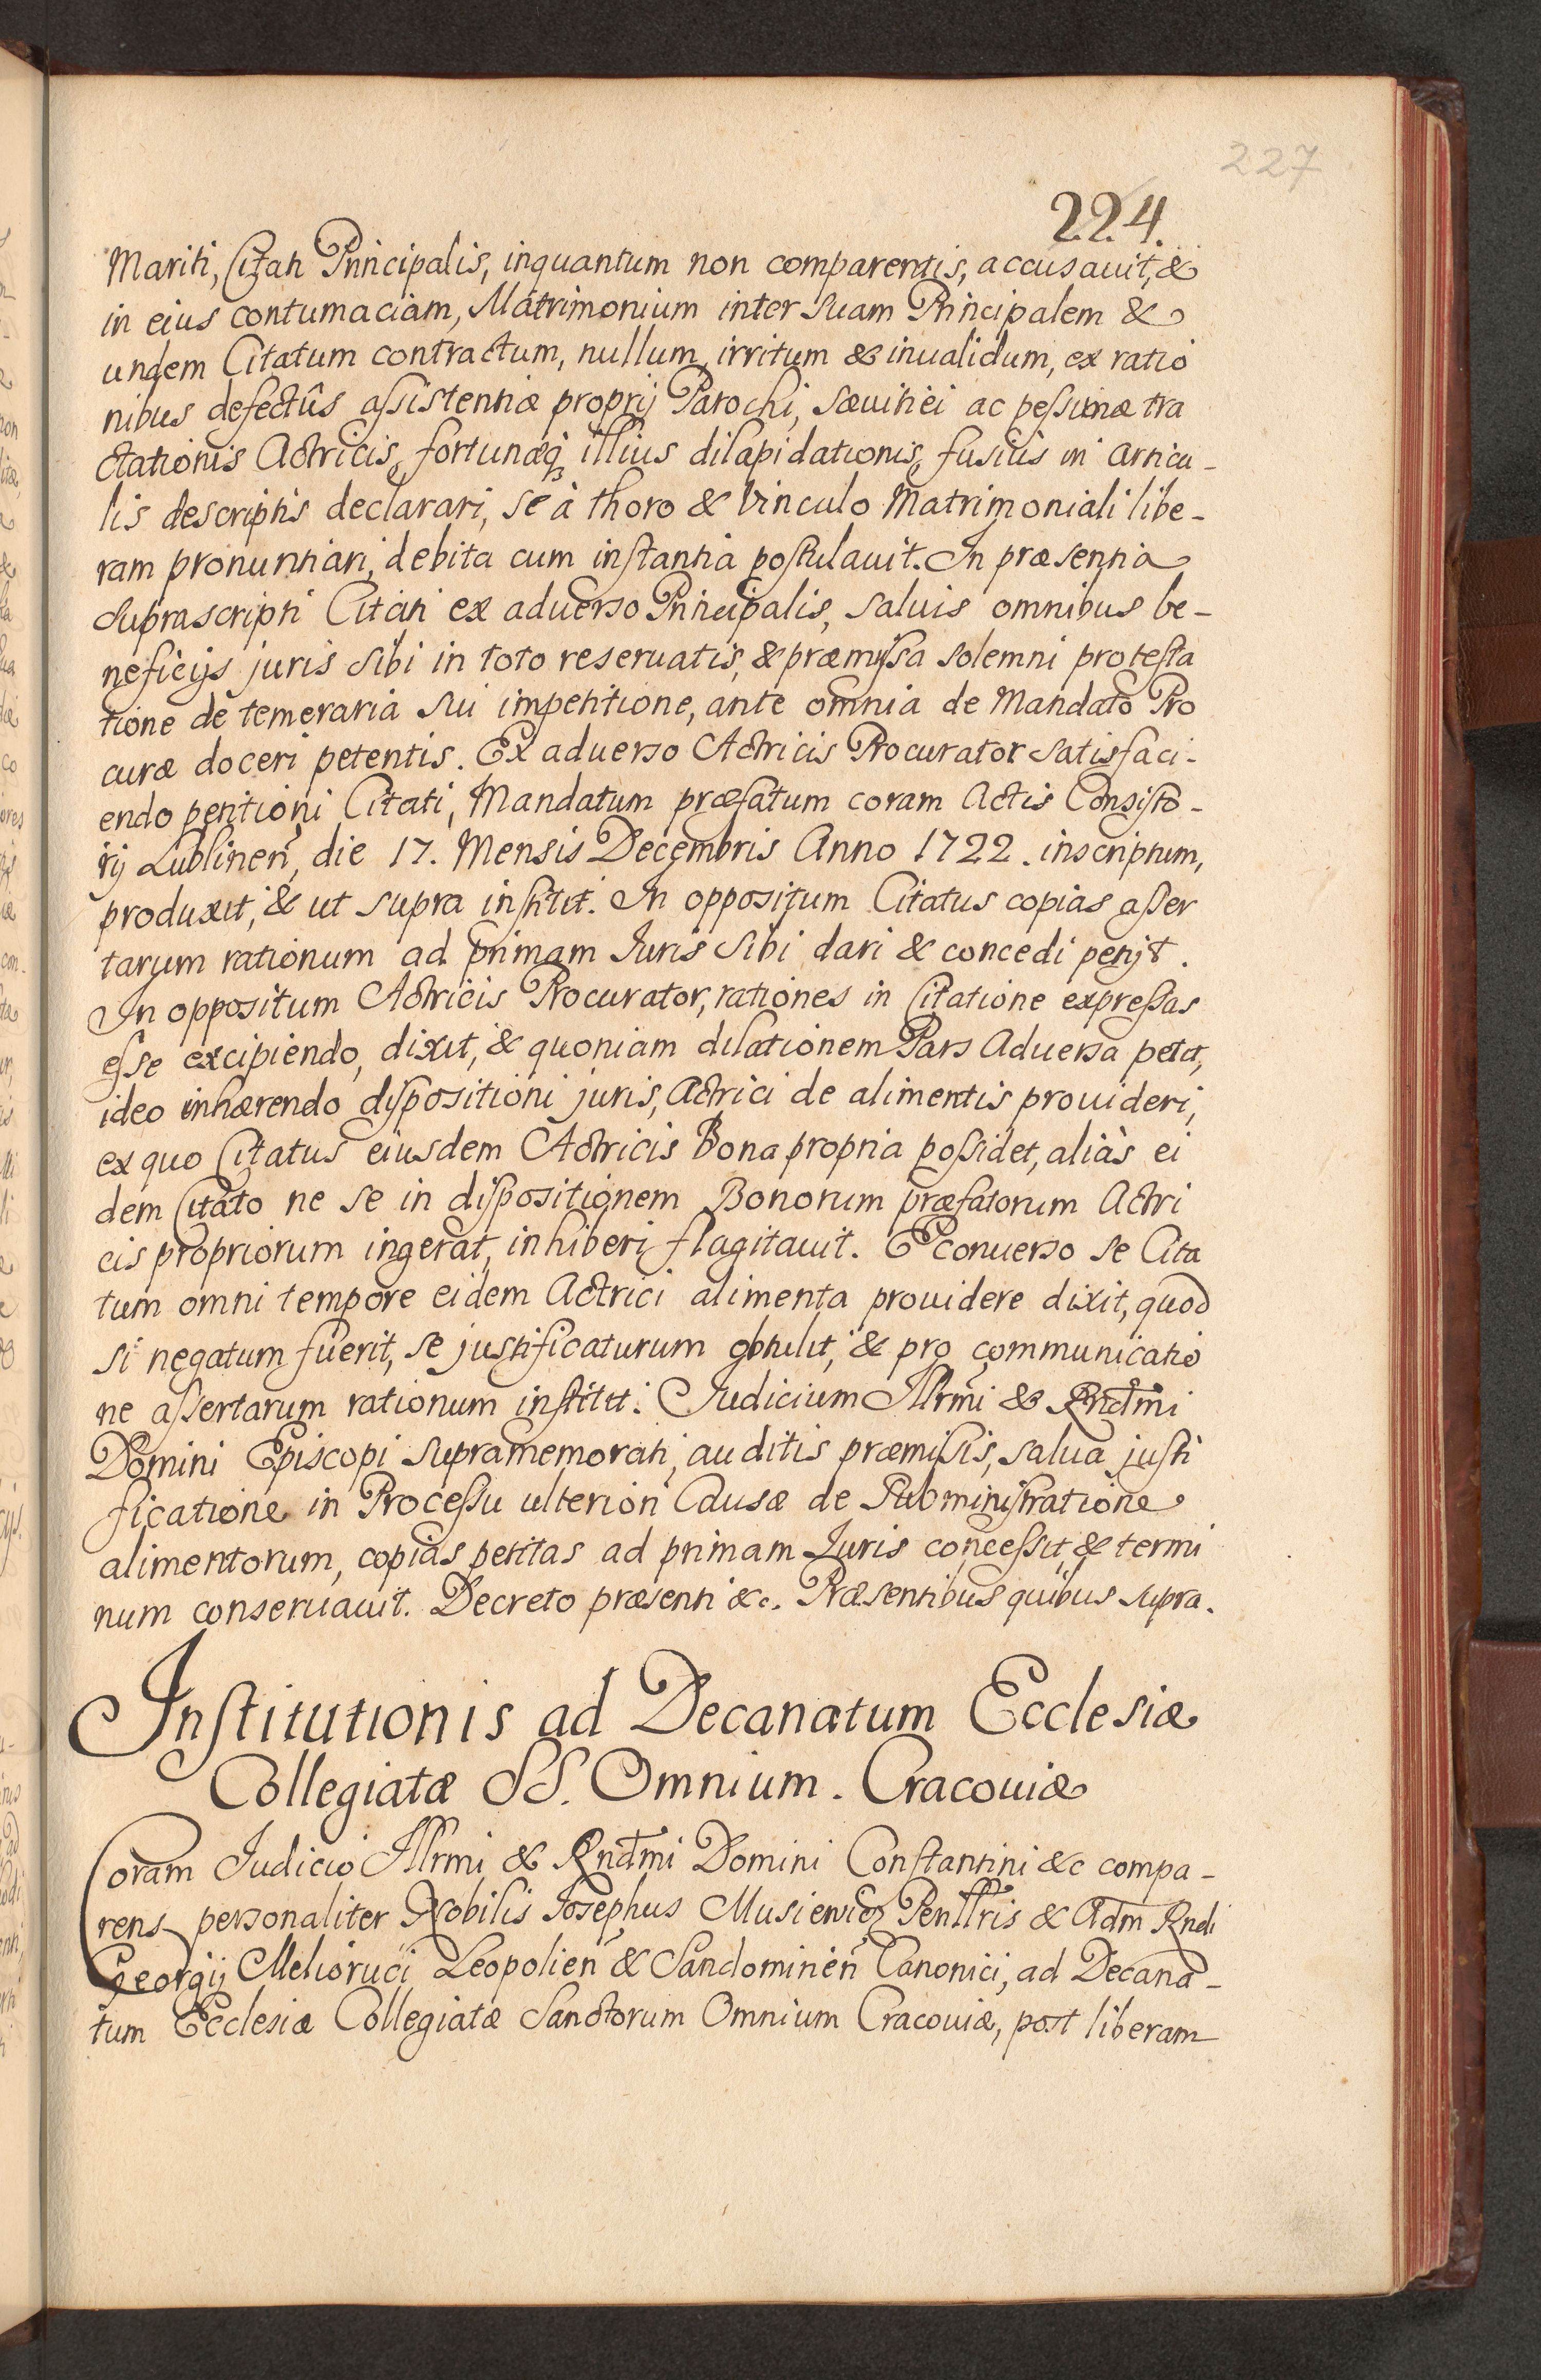 227
224.
Mariti, Citati Principalis, inquantum non comparentis, accusauit, &
in eius contumaciam, Matrimonium inter suam Principalem &
undem Citatum contractum, nullum, irritum & inualidum, ex ratio
nibus defectûs assistentiæ proprij Parochi, sæuitiei ac pessimæ tra
ctationis Actricis, fortunæq3 illius dilapidationis, fusius in Articu-
lis descriptis declarari, se à thoro & Vinculo Matrimoniali libe-
ram pronuntiari, debita cum instantia postulauit. In præsentia
Suprascripti Citati ex aduerso Principalis, saluis omnibus be-
neficijs juris sibi in toto reseruatis, & præmissa solemni protesta
tione de temeraria sui impetitione, ante omnia de Mandato Pro
curæ doceri petentis. Ex aduerso Actricis Procurator satisfaci-
endo petitioni Citati, Mandatum præfatum coram Actis Consisto-
rij Lublinen̄, die 17. Mensis Decembris Anno 1722. inscriptum,
produxit, & ut supra institit. In oppositum Citatus copias asser
tarum rationum ad primam Iuris sibi dari & concedi petijt.
In oppositum Actricis Procurator, rationes in Citatione expressas
esse excipiendo, dixit, & quoniam dilationem Pars Aduersa petit,
ideo inhærendo dispositioni juris, Actrici de alimentis prouideri,
ex quo Citatus eiusdem Actricis Bona propria possidet, aliàs ei
dem Citato ne se in dispositionem Bonorum præfatorum Actri
cis propriorum ingerat, inhiberi flagitauit. Econuerso se Cita
tum omni tempore eidem Actrici alimenta prouidere dixit, quod
si negatum fuerit, se justificaturum obtulit, & pro communicatio
ne assertarum rationum institit. Judicium Illrm̄i & Rnd̄mi
Domini Episcopi supramemorati, auditis præmissis, salua justi
ficatione in Processu ulteriori Causæ de Subministratione
alimentorum, copias petitas ad primam Iuris concessit, & termi
num conseruauit. Decreto præsenti &c. Præsentibus quibus supra.
Institutionis ad Decanatum Ecclesiæ
Collegiatæ SS. Omnium. Cracouiæ
Coram Iudicio Illrmi & Rnd̄mi Domini Constantini &c compa-
rens personaliter Nobilis Iosephus Musiewicz Penllris & Adm̄ Rndi
Georgij Melioruci Leopolien̄ & Sandominen̄ Canonici, ad Decana-
tum Ecclesiæ Collegiatæ Sanctorum Omnium Cracouiæ, post liberam